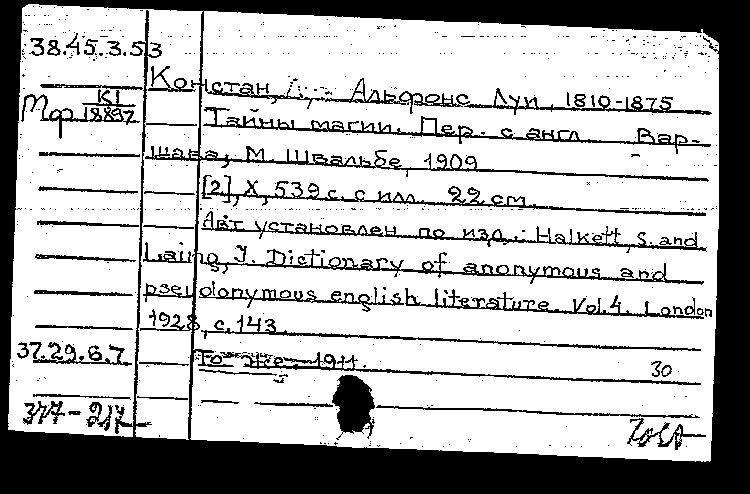 38.45.3.53
Констан, Альфонс Луи, 1810-1875
Мф К1/18897 Тайны магии. Пер. с англ. Вар-
шава, М. Швальбе, 1909
[2], X, 539 с. с илл. 22 см.
Авт установлен по изд.: Halkett, S. and
Laing, J. Dictionary of anonymous and
pseudonymous english literature. Vol. 4. London
1928, с. 143.
37.29.6.7 То же. 1911. 30
377-217-